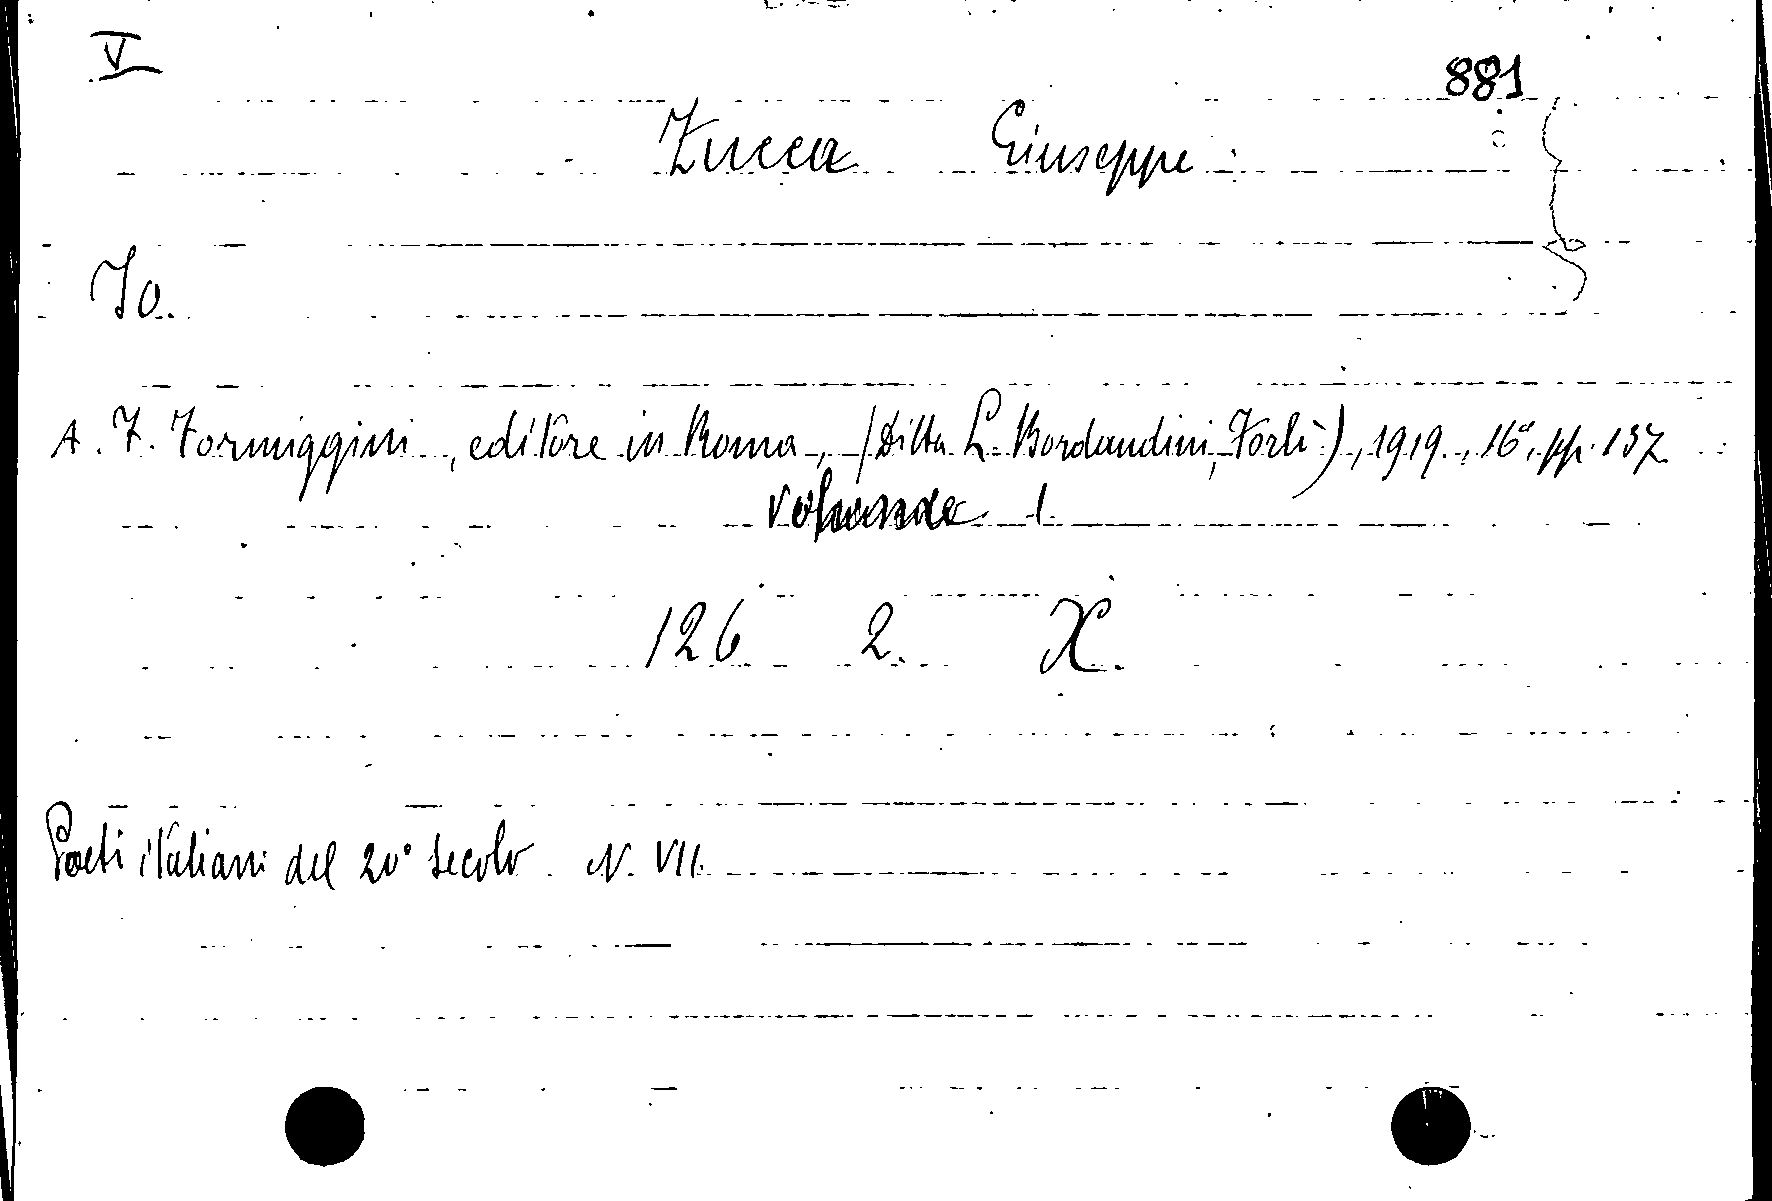 V
881
Zucca Giuseppe
Io.
A. F. Formiggini, editore in Roma, (Ditta L. Bordandini, Forlì), 1919, 16°, pp. 137
volume 1.
126 2. X.
Poeti italiani del 20° secolo. N. VII.